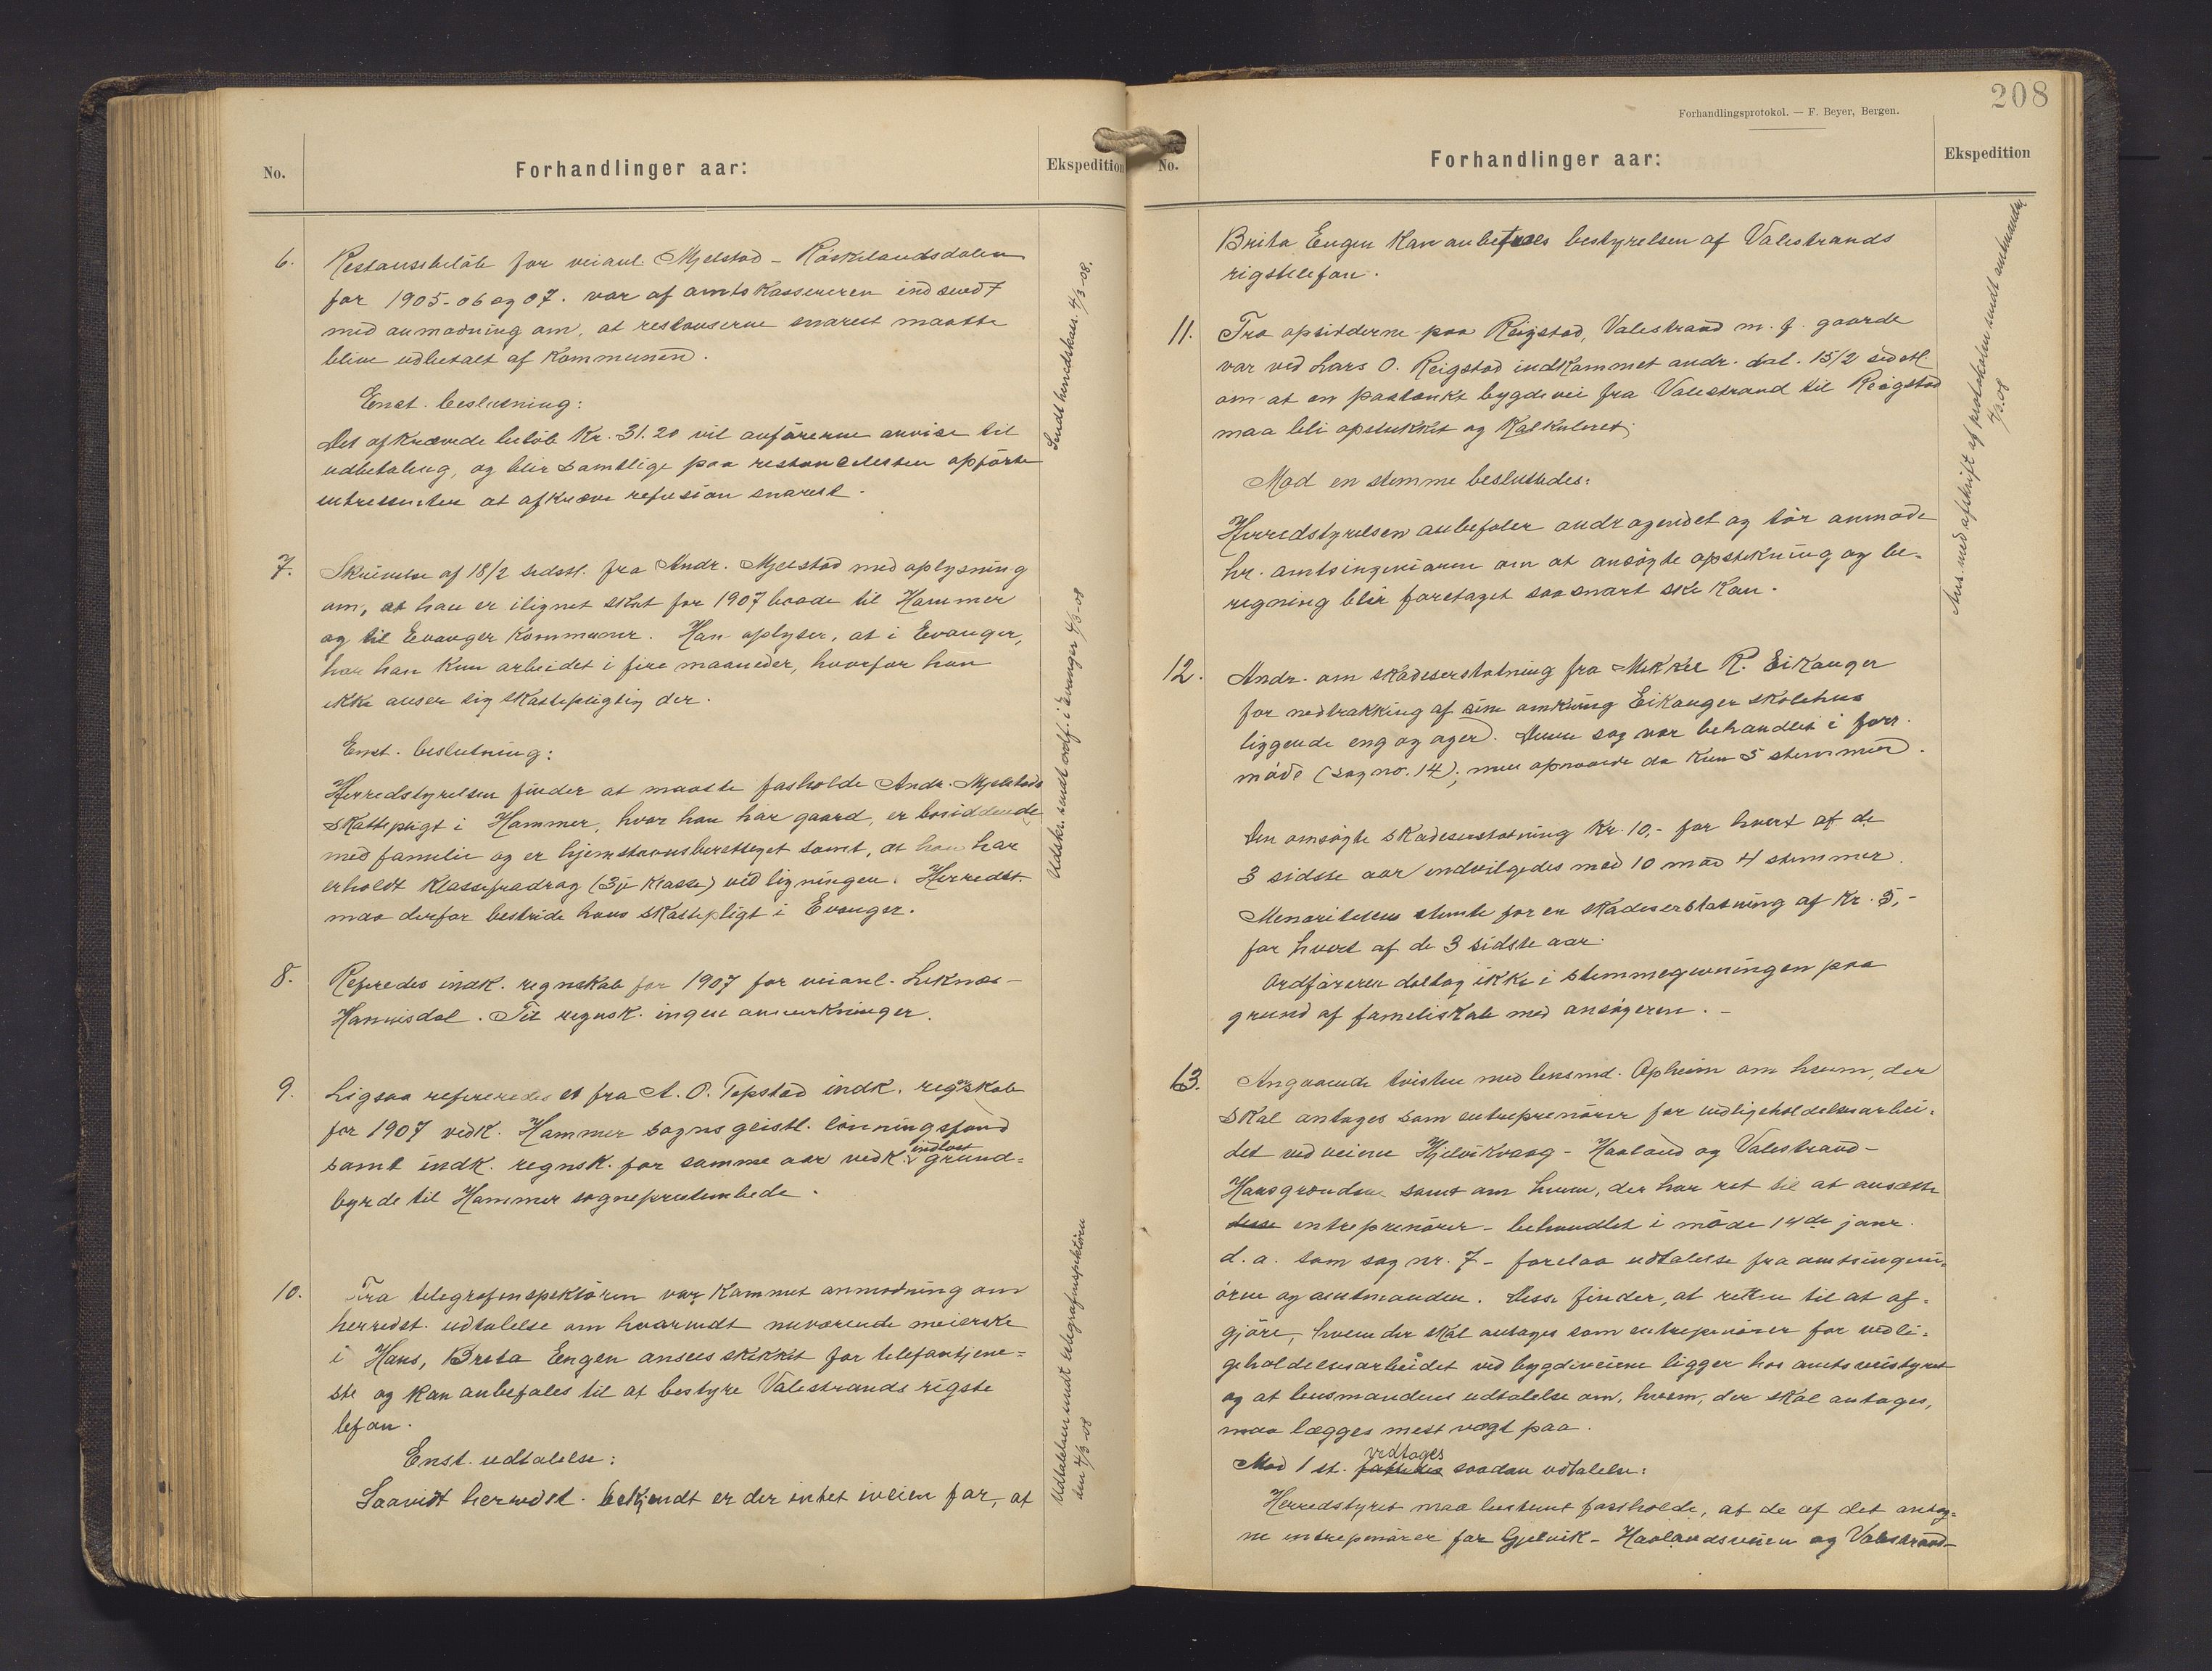 No.
Forhandlinger aar:
Ekspedition
6.
Restansebeløb for veianl. Mjelstad - Røskelandsdalen
for 1905-06 og 07. var af amtskassereren indsendt
med anmodning om, at restanserne snarest maatte
blive udbetalt af Kommunen.
Enst. beslutning:
Det afkrævede beløb Kr. 31.20 vil anføreren anvise til
udbetaling, og blir samtlige paa restancelisten opførte
intressenter at afkræve refusion snarest.
Sendt herredskass. 4/3-08.
7.
Skrivelse af 18/2 sidstl. fra Andr. Mjelstad med oplysning
om, at han er ilignet skat for 1907 baade til Hammer
og til Evanger Kommuner. Han oplyser, at i Evanger,
har han kun arbeidet i fire maaneder, hvorfor han
ikke anser sig skattepligtig der.
Enst. beslutning:
Herredstyrelsen finder at maatte fasholde Andr. Mjelstads
skattepligt i Hammer, hvor han har gaard, er bosiddende
med familie og er hjemstavnsberettiget samt, at han har
erholdt klassefradrag (3je klasse) ved ligningen. Herredst.
maa derfor bestride hans skattepligt i Evanger.
Udskr. sendt ordf. i Evanger 4/3-08
8.
Refredes indk. regnskab for 1907 for veianl. Leknæs-
Hannisdal. Til regnsk. ingen anmerkninger.
9.
Ligsaa refereredes et fra A. O. Tepstad indk. regnskab
for 1907 vedk. Hammer sogns geistl. lønningsfond
samt indk. regnsk. for samme aar vedk. indløst grund=
byrde til Hammer sogneprestembede.
10.
Fra telegrafinspektøren var kommet anmodning om
herredst. udtalelse om hvorvidt nuværende meierske
i Haus, Brita Engen ansees skikket for telefontjene=
ste og kan anbefales til at bestyre Valestrands rigste
lefon.
Enst. udtalelse:
Saavidt herredst. bekjendt er der intet iveien for, at
Udtalelsen sendt telegrafinspektøren
den 4/3-08
208
Forhandlingsprotokol. — F. Beyer, Bergen.
No.
Forhandlinger aar:
Ekspedition
Brita Engen kan anbetroes bestyrelsen af Valestrands
rigstelefon.
11.
Fra opsidderne paa Reigstad, Valestrand m. fl. gaarde
var ved Lars O. Reigstad indkommet andr. dat. 15/2 sidstl.
om at en paatænkt bygdevei fra Valestrand til Reigstad
maa bli opstukket og kalkuleret;
Mod en stemme besluttedes:
Herredstyrelsen anbefaler andragendet og tør anmode
hr. amtsingeniøren om at ansøgte opstikning og be-
regning blir foretaget saasnart ske kan.
Ans. med afskrift af protokolen sendt amtmanden
4/3.08
12.
Andr. om skadeserstatning fra Mikkel R. Eikanger
for nedtrakking af sine omkring Eikanger skolehus
liggende eng og ager. Denne sag var behandlet i forr.
møde (sag no. 14); men opnaaede da kun 5 stemmer.
Den omsøgte skadeserstatning Kr. 10,- for hvert af de
3 sidste aar indvilgedes med 10 mod 4 stemmer.
Menoriteten stemte for en skadeserstatning af Kr. 5,-
for hvert af de 3 sidste aar.
Ordføreren deltog ikke i stemmegivningen paa
grund af familiskab med ansøgeren. -
13.
Angaaende tvisten med lensmd. Opheim om hvem, der
skal antages som entreprenører for vedligeholdelsesarbei-
det ved veiene Hjelvikvaag - Haaland og Valestrand-
Hausgrændsen samt om hvem, der har ret til at ansætte
disse entreprenører - behandlet i møde 14de janr.
d. a. som sag nr. 7 - forelaa udtalelse fra amtsingeni-
øren og amtmanden. Disse finder, at retten til at af-
gjøre, hvem der skal antages som entreprenører for vedli-
geholdelsesarbeidet ved bygdeveiene ligger hos amtsveistyret
og at lensmandens udtalelse om, hvem, der skal antages,
maa lægges mest vægt paa.
Mod 1 st. vedtages saadan udtalelse:
Herredstyret maa bestemt fastholde, at de af det antag-
ne entreprenører for Gjelvik - Haalandsveien og Valestrand-